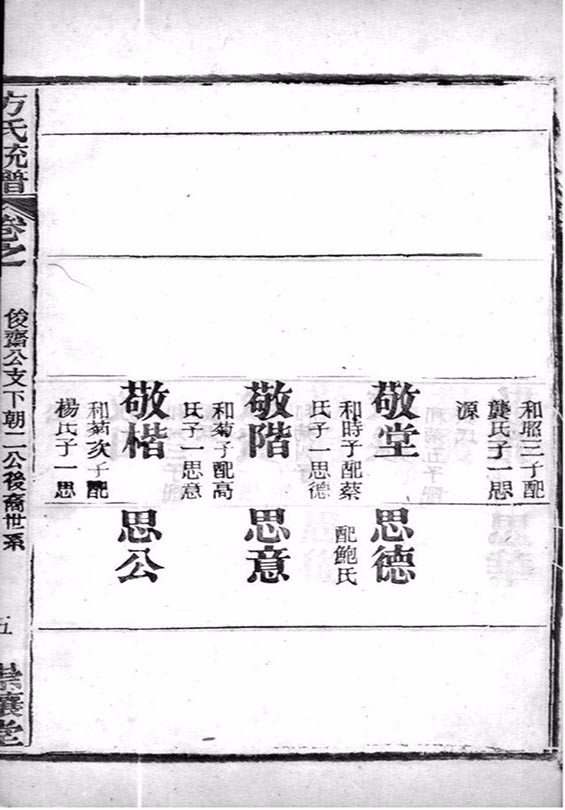 和昭三子配
龔氏子一思
源
敬堂
和時子配蔡
氏子一思德
敬階
和菊子配高
氏子一思意
敬楷
和菊次子配
楊氏子一思
思德
配鮑氏
思意
思公
方氏統譜
卷之一
俊齋公支下朝二公後裔世系
五